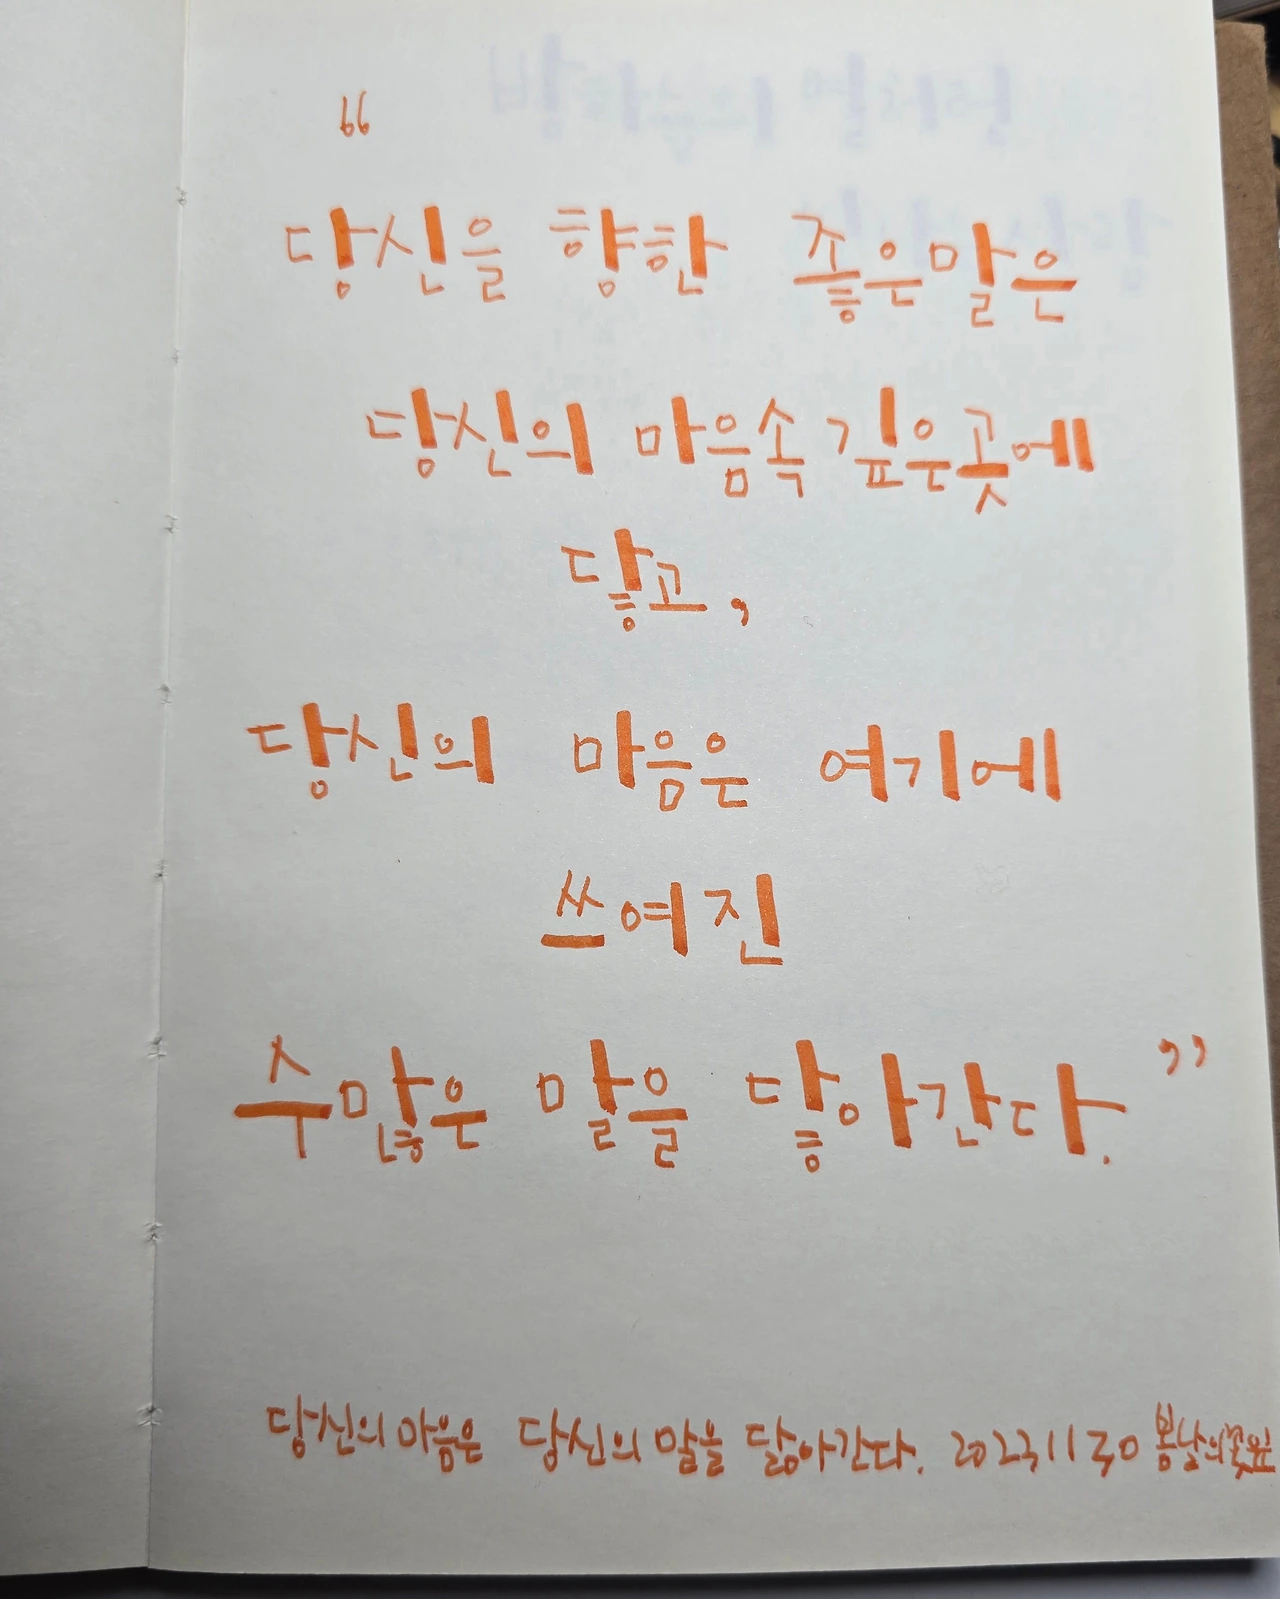 “
당신을 향한 좋은말은
당신의 마음속 깊은곳에
닿고,
당신의 마음은 여기에
쓰여진
수많은 말을 닿아간다.”
당신의 마음은 당신의 말을 닮아간다. 20231130 봄날의꽃잎